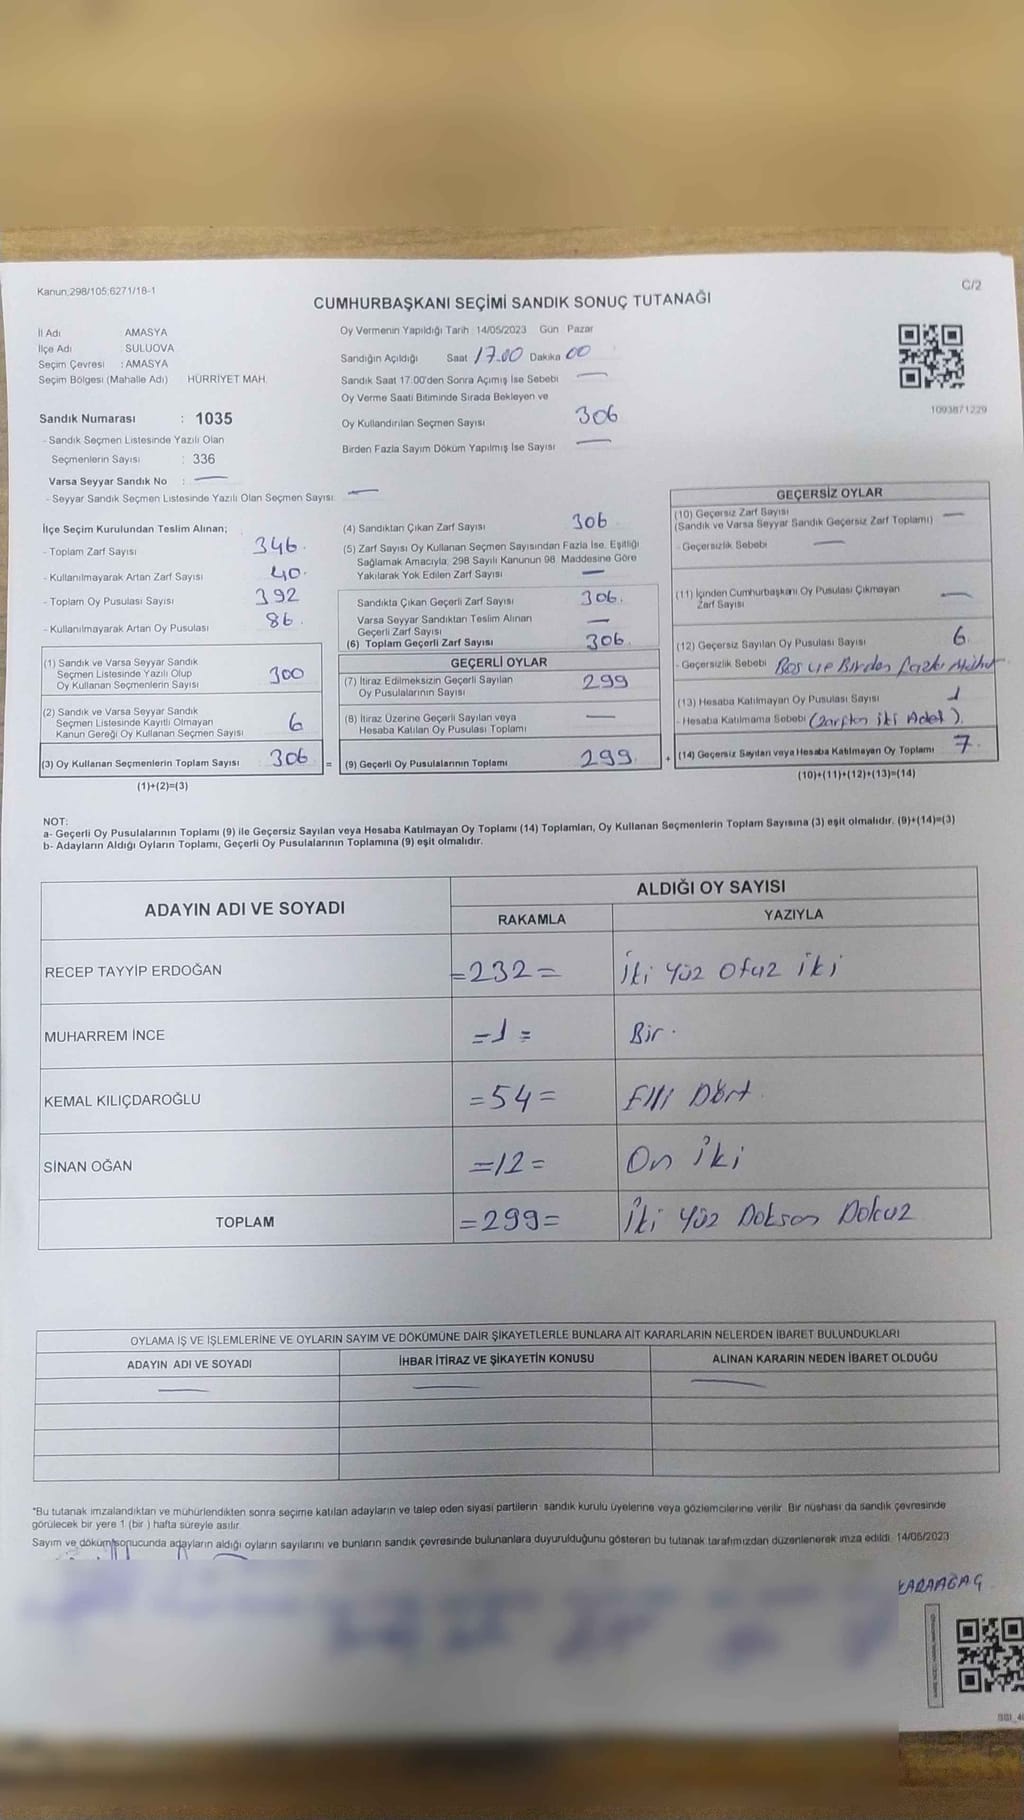 Kanun:298/105;6271/18-1
C/2
CUMHURBAŞKANI SEÇİMİ SANDIK SONUÇ TUTANAĞI
İl Adı AMASYA
İlçe Adı : SULUOVA
Seçim Çevresi : AMASYA
Seçim Bölgesi (Mahalle Adı) HÜRRİYET MAH.
Sandık Numarası : 1035
- Sandık Seçmen Listesinde Yazılı Olan
Seçmenlerin Sayısı : 336
Varsa Seyyar Sandık No : —
- Seyyar Sandık Seçmen Listesinde Yazılı Olan Seçmen Sayısı: —
Oy Vermenin Yapıldığı Tarih : 14/05/2023 Gün : Pazar
Sandığın Açıldığı Saat 17.00 Dakika 00
Sandık Saat 17.00'den Sonra Açımış İse Sebebi —
Oy Verme Saati Bitiminde Sırada Bekleyen ve
Oy Kullandırılan Seçmen Sayısı 306
Birden Fazla Sayım Döküm Yapılmış İse Sayısı —
1093871229
İlçe Seçim Kurulundan Teslim Alınan;
- Toplam Zarf Sayısı 346.
- Kullanılmayarak Artan Zarf Sayısı 40.
- Toplam Oy Pusulası Sayısı 392
- Kullanılmayarak Artan Oy Pusulası 86.
(1) Sandık ve Varsa Seyyar Sandık
Seçmen Listesinde Yazılı Olup
Oy Kullanan Seçmenlerin Sayısı 300
(2) Sandık ve Varsa Seyyar Sandık
Seçmen Listesinde Kayıtlı Olmayan
Kanun Gereği Oy Kullanan Seçmen Sayısı 6
(3) Oy Kullanan Seçmenlerin Toplam Sayısı 306 =
(1)+(2)=(3)
(4) Sandıktan Çıkan Zarf Sayısı 306
(5) Zarf Sayısı Oy Kullanan Seçmen Sayısından Fazla İse, Eşitliği
Sağlamak Amacıyla, 298 Sayılı Kanunun 98. Maddesine Göre
Yakılarak Yok Edilen Zarf Sayısı —
Sandıkta Çıkan Geçerli Zarf Sayısı 306.
Varsa Seyyar Sandıktan Teslim Alınan
Geçerli Zarf Sayısı —
(6) Toplam Geçerli Zarf Sayısı 306.
GEÇERLİ OYLAR
(7) İtiraz Edilmeksizin Geçerli Sayılan
Oy Pusulalarının Sayısı 299
(8) İtiraz Üzerine Geçerli Sayılan veya
Hesaba Katılan Oy Pusulası Toplamı —
(9) Geçerli Oy Pusulalarının Toplamı 299. +
GEÇERSİZ OYLAR
(10) Geçersiz Zarf Sayısı
(Sandık ve Varsa Seyyar Sandık Geçersiz Zarf Toplamı) —
- Geçersizlik Sebebi —
(11) İçinden Cumhurbaşkanı Oy Pusulası Çıkmayan
Zarf Sayısı —
(12) Geçersiz Sayılan Oy Pusulası Sayısı 6
- Geçersizlik Sebebi Boş ve Birden fazla
(13) Hesaba Katılmayan Oy Pusulası Sayısı 1
- Hesaba Katılmama Sebebi (Zarftan iki Adet).
(14) Geçersiz Sayılan veya Hesaba Katılmayan Oy Toplamı 7.
(10)+(11)+(12)+(13)=(14)
NOT:
a- Geçerli Oy Pusulalarının Toplamı (9) ile Geçersiz Sayılan veya Hesaba Katılmayan Oy Toplamı (14) Toplamları, Oy Kullanan Seçmenlerin Toplam Sayısına (3) eşit olmalıdır. (9)+(14)=(3)
b- Adayların Aldığı Oyların Toplamı, Geçerli Oy Pusulalarının Toplamına (9) eşit olmalıdır.
ADAYIN ADI VE SOYADI ALDIĞI OY SAYISI
RAKAMLA YAZIYLA
RECEP TAYYİP ERDOĞAN =232= İki Yüz Otuz iki
MUHARREM İNCE =1= Bir.
KEMAL KILIÇDAROĞLU =54= Elli Dört.
SİNAN OĞAN =12= On iki
TOPLAM =299= İki Yüz Doksan Dokuz
OYLAMA İŞ VE İŞLEMLERİNE VE OYLARIN SAYIM VE DÖKÜMÜNE DAİR ŞİKAYETLERLE BUNLARA AİT KARARLARIN NELERDEN İBARET BULUNDUKLARI
ADAYIN ADI VE SOYADI İHBAR İTİRAZ VE ŞİKAYETİN KONUSU ALINAN KARARIN NEDEN İBARET OLDUĞU
— — —
*Bu tutanak imzalandıktan ve mühürlendikten sonra seçime katılan adayların ve talep eden siyasi partilerin sandık kurulu üyelerine veya gözlemcilerine verilir. Bir nüshası da sandık çevresinde
görülecek bir yere 1 (bir ) hafta süreyle asılır.
Sayım ve döküm sonucunda adayların aldığı oyların sayılarını ve bunların sandık çevresinde bulunanlara duyurulduğunu gösteren bu tutanak tarafımızdan düzenlenerek imza edildi. 14/05/2023
KARAAĞAÇ